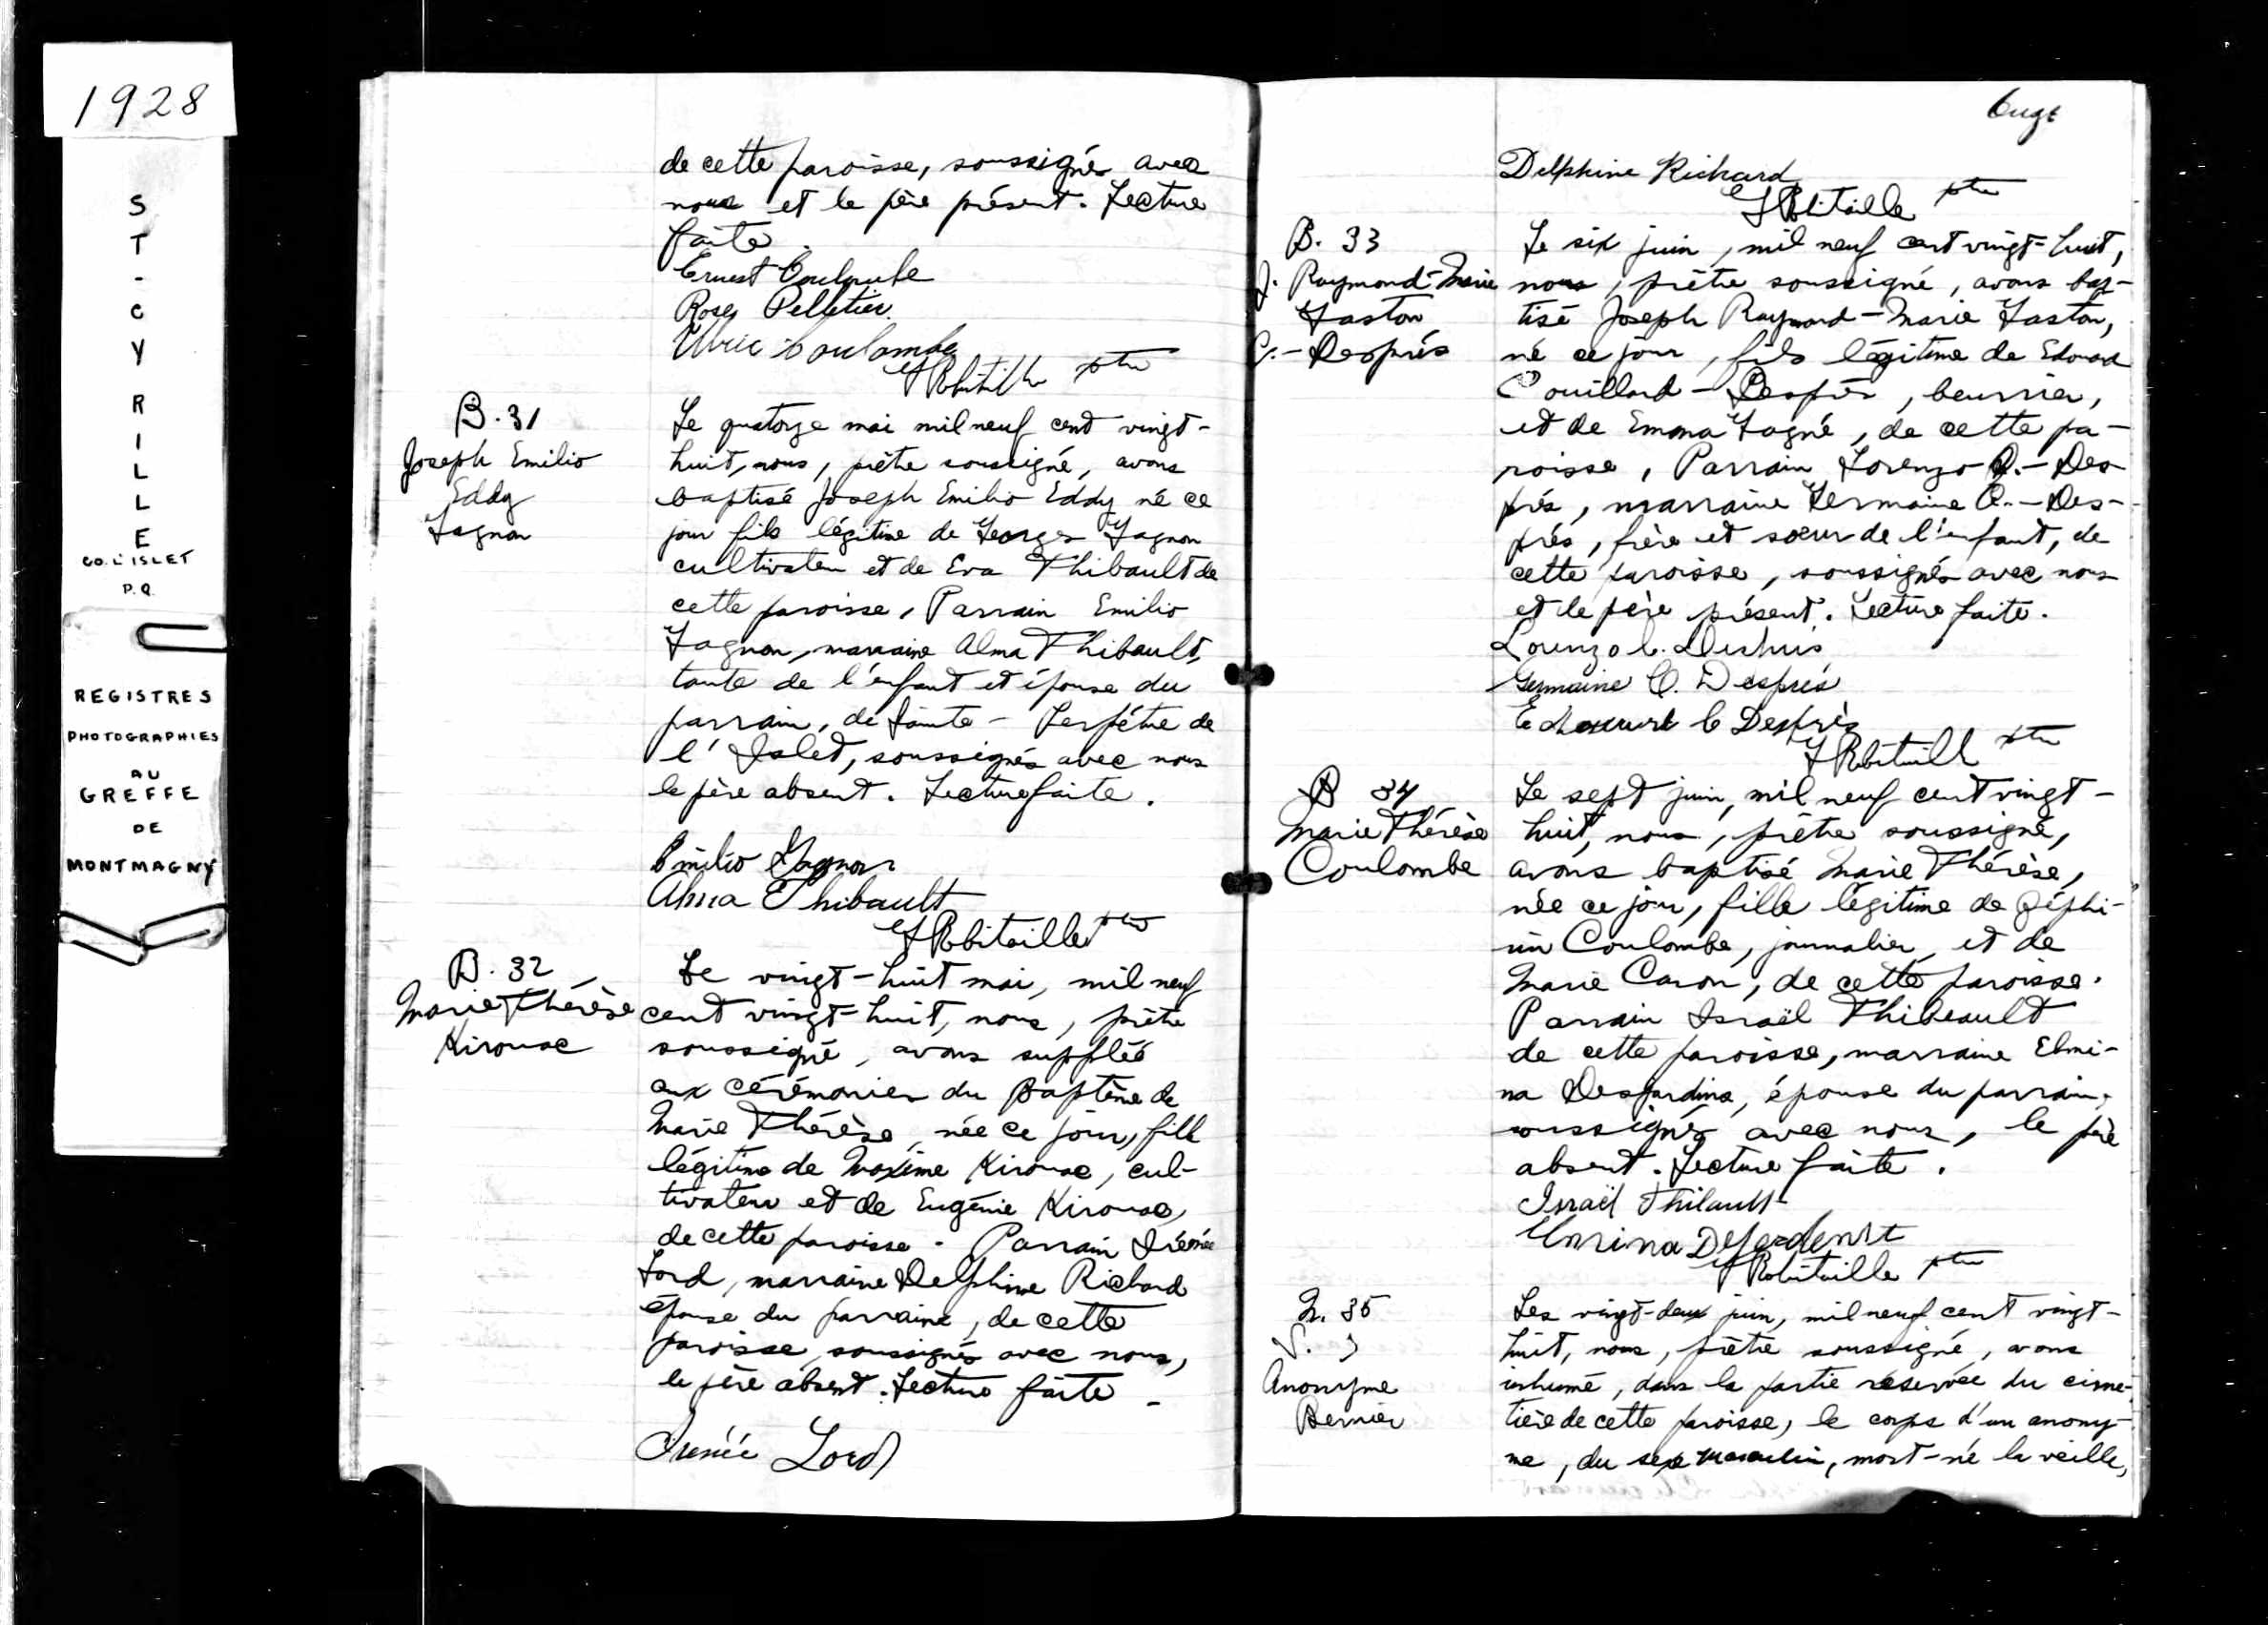 1928
ST-CYRILLE
CO. L'ISLET
P.Q.
REGISTRES
PHOTOGRAPHIES
AU
GREFFE
DE
MONTMAGNY
de cette paroisse, soussignés avec
nous et le père présent. Lecture
faite.
Ernest Coulombe
Rose Pelletier.
Ulric Coulombe
Robitaille ptre
B. 31
Joseph Emilio
Eddy
Gagnon
Le quatorze mai mil neuf cent vingt-
huit, nous, prêtre soussigné, avons
baptisé Joseph Emilio Eddy né ce
jour fils légitime de Georges Gagnon
cultivateur et de Eva Thibault de
cette paroisse, Parrain Emilio
Gagnon, marraine Alma Thibault,
tante de l'enfant et épouse du
parrain, de Sainte-Perpétue de
l'Islet, soussignés avec nous
le père absent. Lecture faite.
Emilio Gagnon
Alma Thibault
Robitaille ptre
B. 32
Marie Thérèse
Kirouac
Le vingt-huit mai, mil neuf
cent vingt-huit, nous, prêtre
soussigné, avons suppléé
aux cérémonies du Baptême de
Marie Thérèse, née ce jour, fille
légitime de Maxime Kirouac, cul-
tivateur et de Eugénie Kirouac,
de cette paroisse. Parrain Irénée
Lord, marraine Delphine Richard
épouse du parraine, de cette
paroisse, soussignés avec nous,
le père absent. Lecture faite -
Irenée Lord
Delphine Richard
Robitaille ptre
B. 33
J. Raymond-Marie
Gaston
C.-Després
Le six juin, mil neuf cent vingt-huit,
nous, prêtre soussigné, avons bap-
tisé Joseph Raymond-Marie Gaston,
né ce jour, fils légitime de Edouard
Couillard-Després, beurrier,
et de Emma Gagné, de cette pa-
roisse, Parrain Lorenzo C.-Des-
prés, marraine Germaine C.-Des-
prés, frère et soeur de l'enfant, de
cette paroisse, soussignés avec nous
et le père présent. Lecture faite.
Lorenzo C. Després
Germaine C. Després
Edouard C Desprès
Robitaille ptre
B 34
Marie Thérèse
Coulombe
Le sept juin, mil neuf cent vingt-
huit, nous, prêtre soussigné,
avons baptisé Marie Thérèse,
née ce jour, fille légitime de Zéphi-
rin Coulombe, journalier, et de
Marie Caron, de cette paroisse.
Parrain Israël Thibeault
de cette paroisse, marraine Elmi-
na Desjardins, épouse du parrain,
soussignés avec nous, le père
absent. Lecture faite.
Israël Thibault
Robitaille ptre
35
Anonyme
Bernier
Les vingt-deux juin, mil neuf cent vingt-
huit, nous, prêtre soussigné, avons
inhumé, dans la partie réservée du cime-
tière de cette paroisse, le corps d'un anony-
me, du sexe masculin, mort-né la veille,